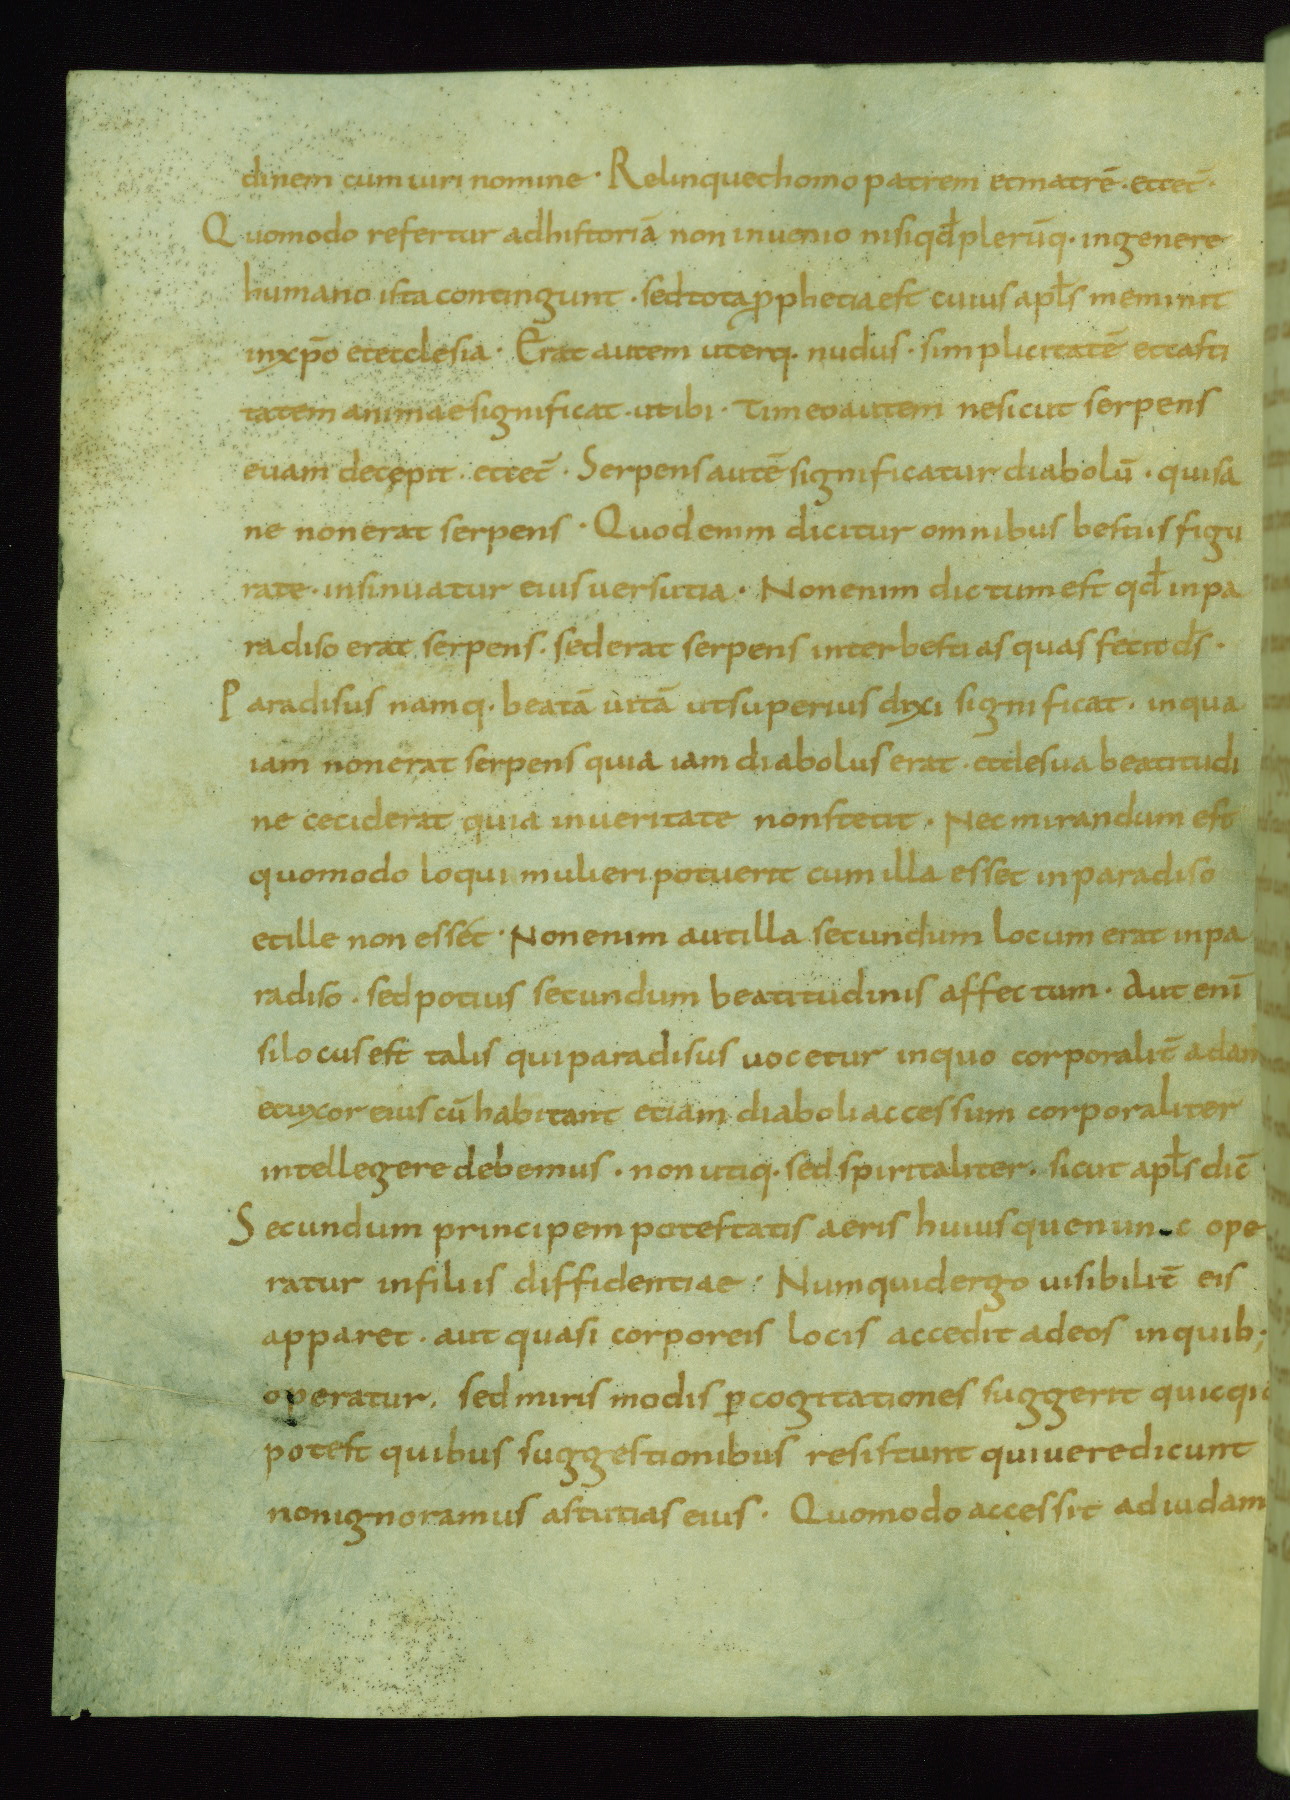 dinem cum uiri nomine · Relinquet homo patrem et matrē · et cet̄ ·
Quomodo refertur ad historiā non inuenio nisi qđ plerūq· in genere
humano ista contingunt · sed tota ꝓphetia est cuius apl̄s meminit
in xp̄o et ecclesia · Erat autem uterq· nudus · simplicitatē et casti
tatem animae significat · ut ibi · Timeo autem ne sicut serpens
euam decepit · et cet̄ · Serpens autē significatur diabolū · qui sa
ne non erat serpens · Quod enim dicitur omnibus bestiis figu
rate · insinuatur eius uersutia · Non enim dictum est qđ in pa
radiso erat serpens · sed erat serpens inter bestias quas fecit ds̄ ·
Paradisus namq· beatā uitā ut superius dixi significat · in qua
iam non erat serpens quia iam diabolus erat · et de sua beatitudi
ne ceciderat quia in ueritate non stetit · Nec mirandum est
quomodo loqui mulieri potuerit cum illa esset in paradiso
et ille non esset · Non enim aut illa secundum locum erat in pa
radiso · sed potius secundum beatitudinis affectum · Aut enī
si locus est talis qui paradisus uocetur in quo corporalit̄ adam
et uxor eius cū habitant etiam diaboli accessum corporaliter
intellegere debemus · non utiq· sed spiritaliter · sicut apl̄s dic̄
Secundum principem potestatis aeris huius que nunc ope
ratur in filiis diffidentiae · Numquid ergo uisibilit̄ eis
apparet · aut quasi corporeis locis accedit ad eos in quib;
operatur · sed miris modis ꝑ cogitationes suggerit quicqid
potest quibus suggestionibus resistunt qui uere dicunt
non ignoramus astutias eius · Quomodo accessit ad iudam